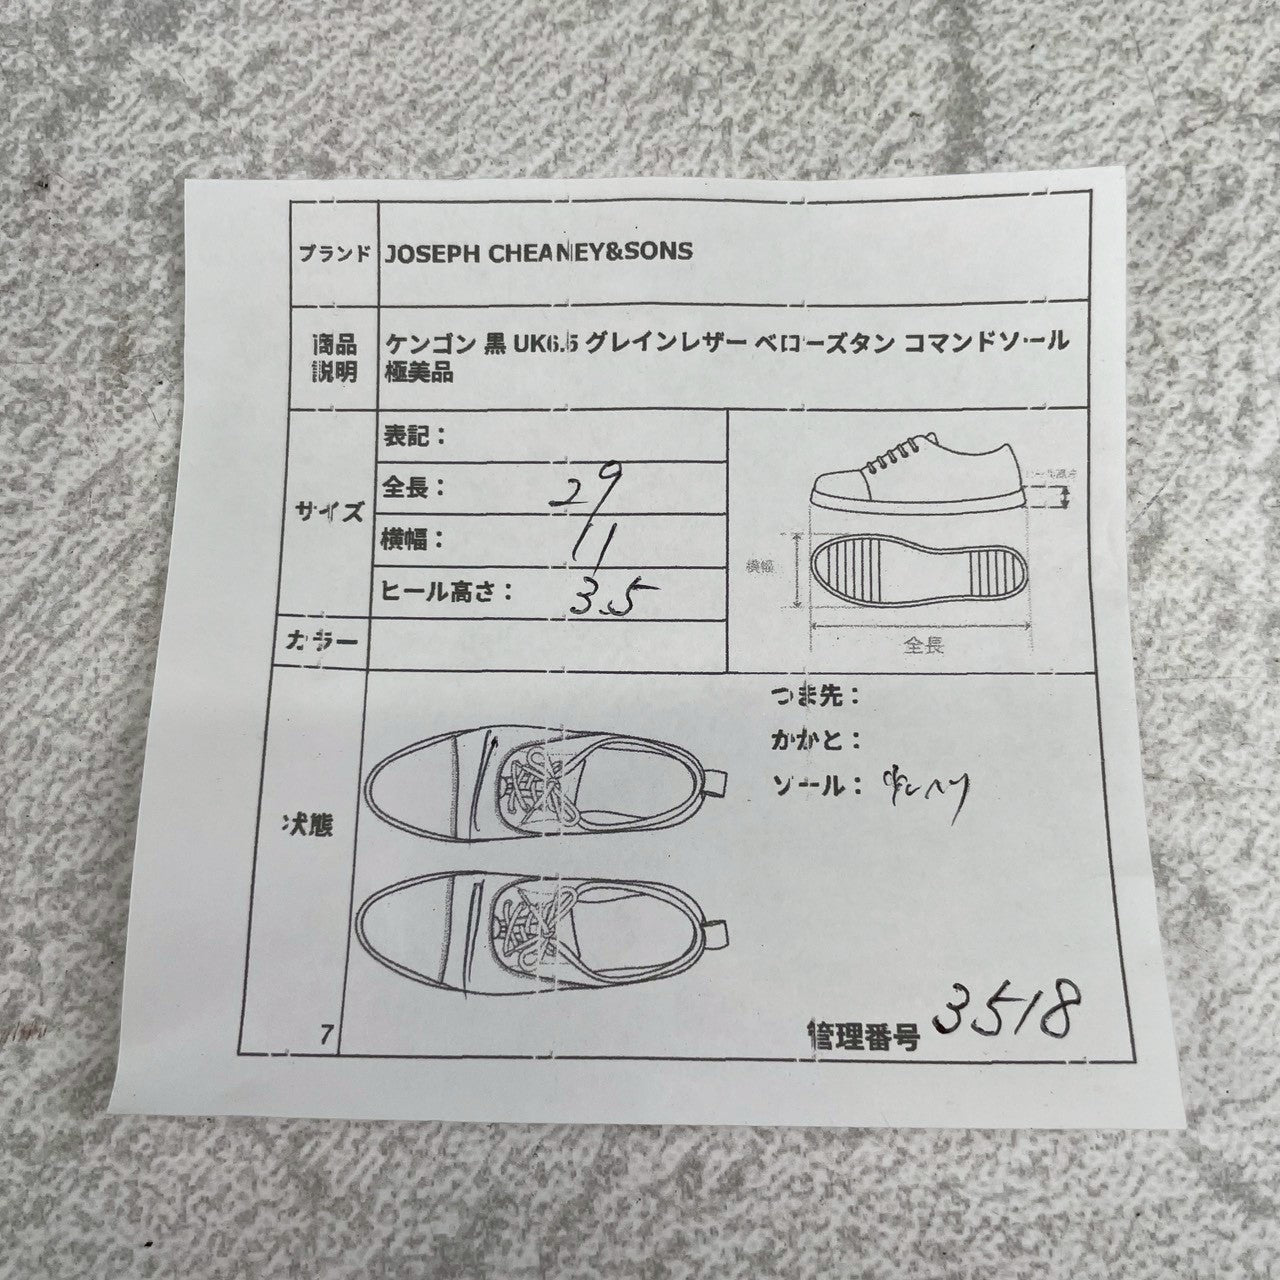 ブランド JOSEPH CHEANEY&SONS
商品説明 ケンゴン 黒 UK6.5 グレインレザー ベローズタン コマンドソール
極美品
サイズ
表記：
全長： 29
横幅： 11
ヒール高さ： 3.5
ヒール高さ
横幅
全長
カラー
状態
つま先：
かかと：
ソール：
7
管理番号 3518